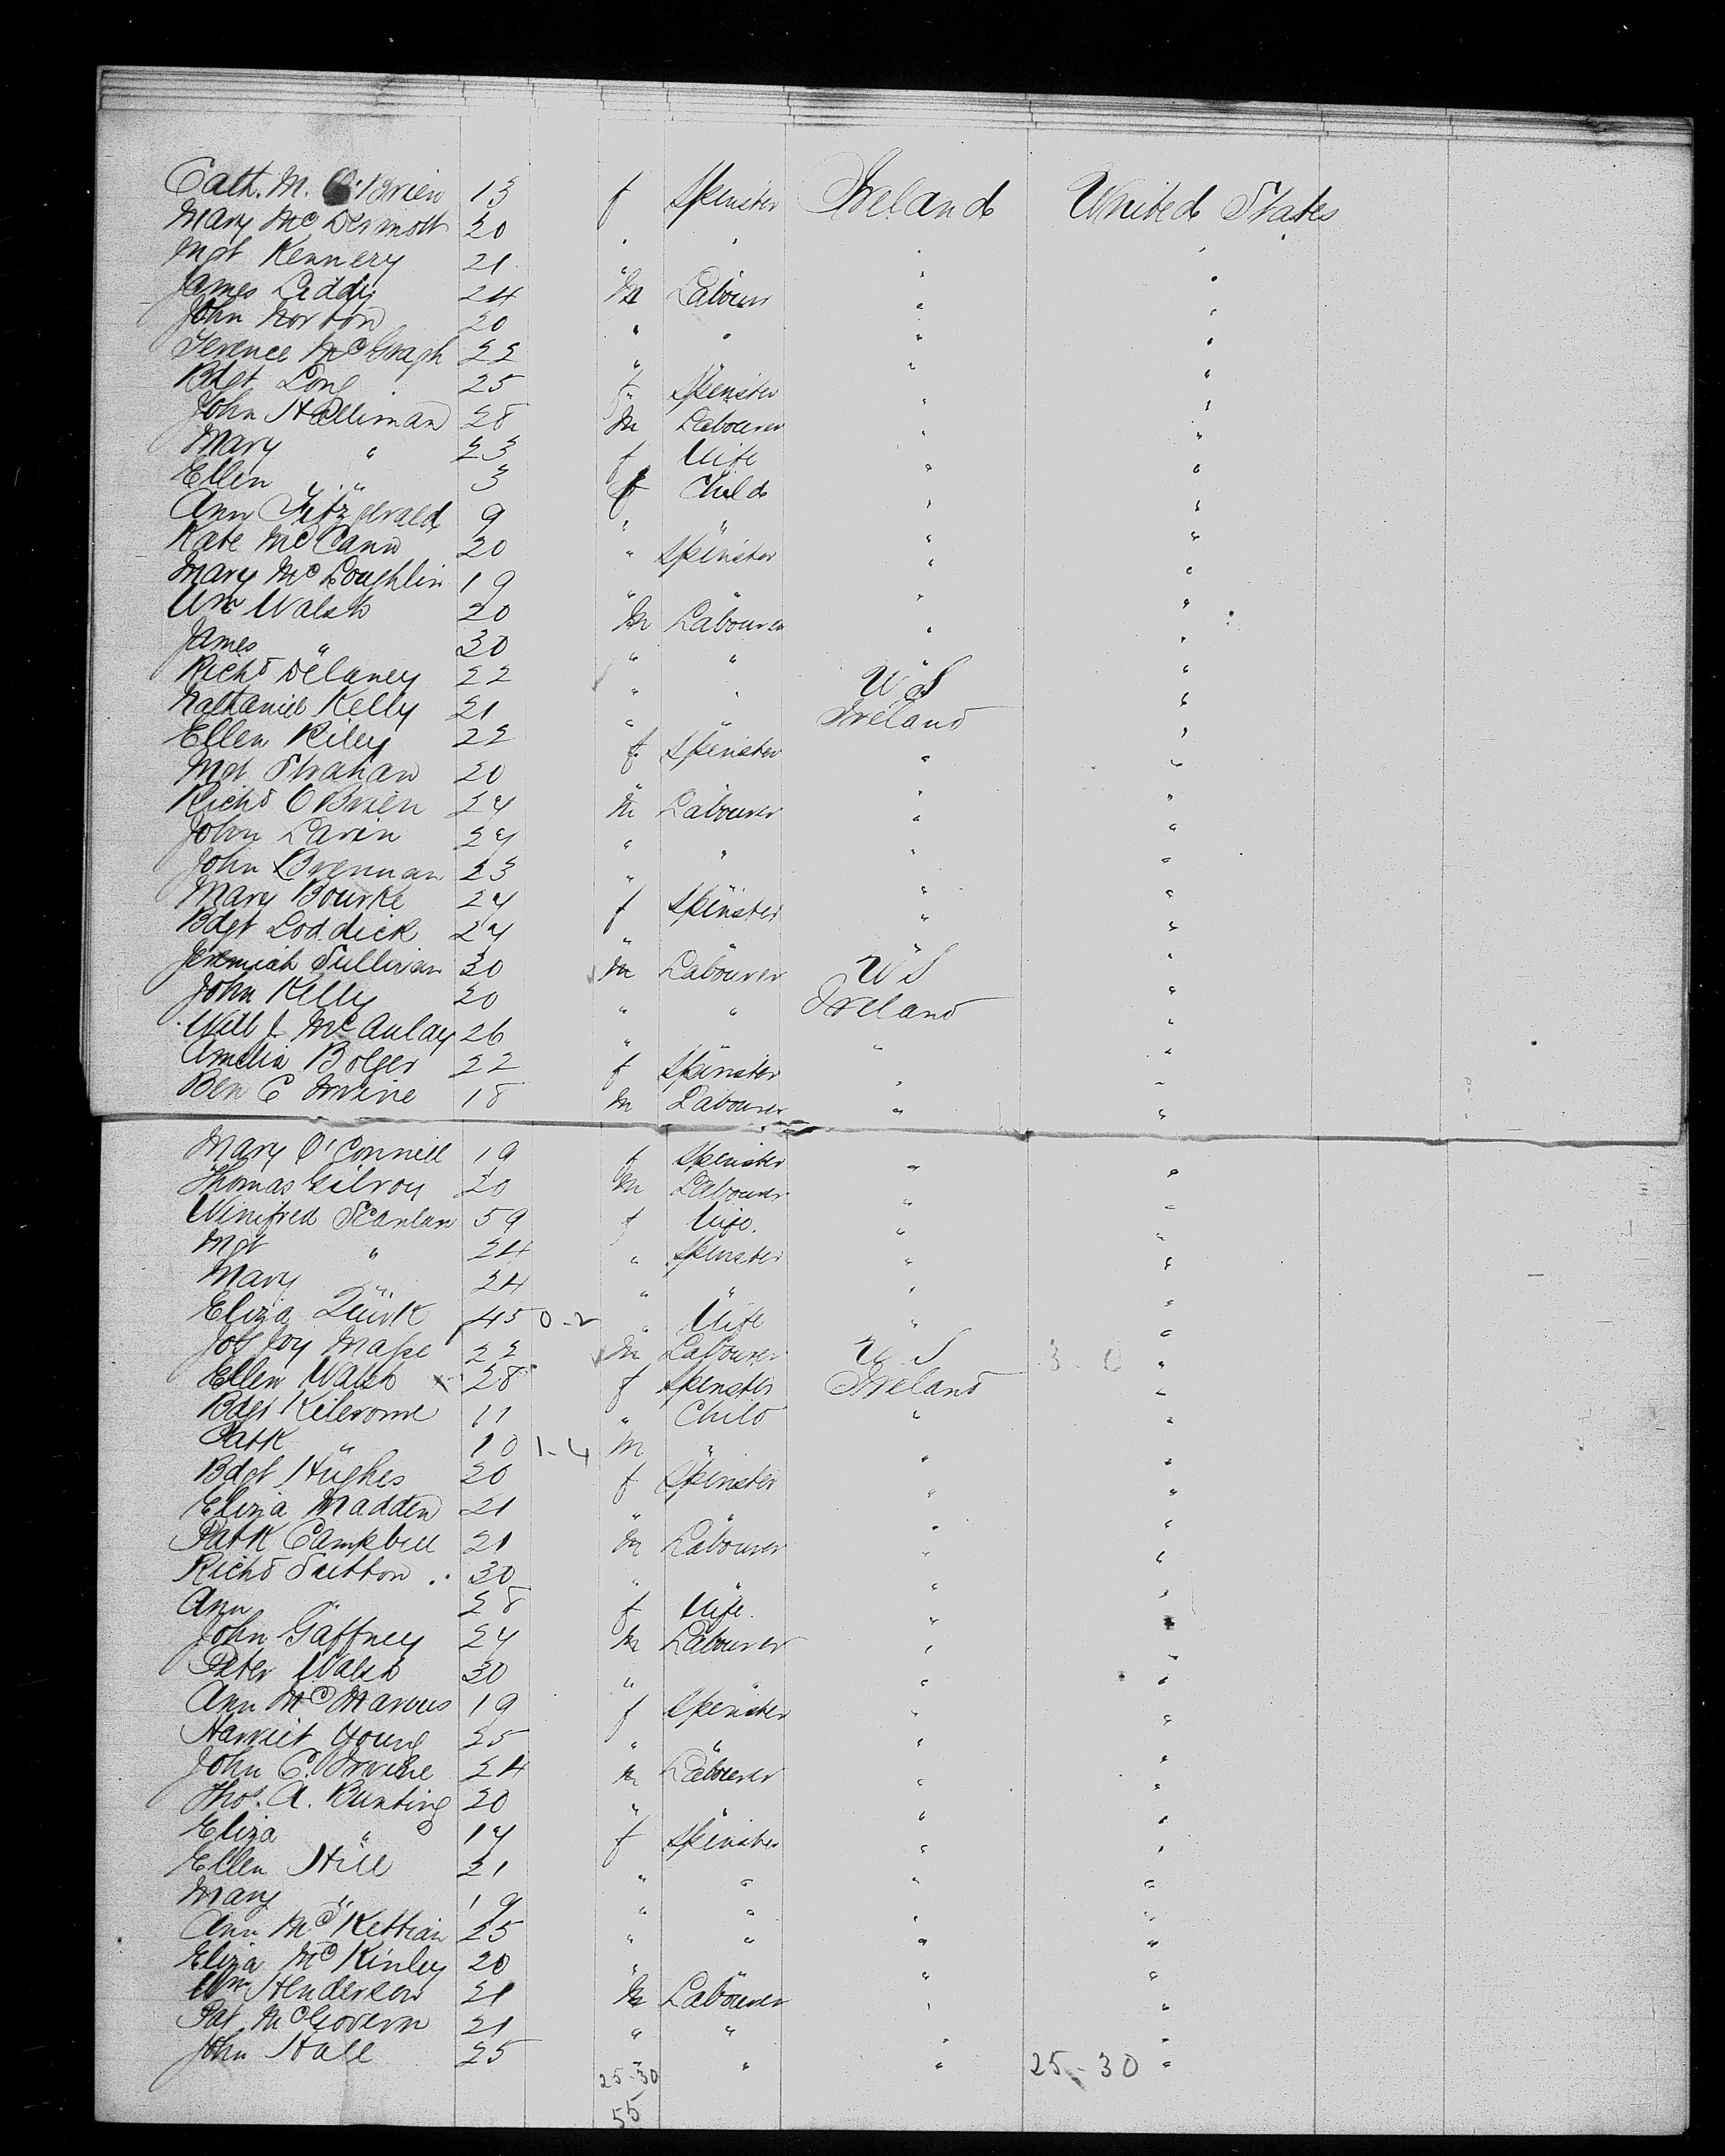 Cath. M. O'Brien 13 f Spinster Ireland United States
Mary McDermott 20 " " " "
Mgt Kennery 21 " " " "
James Liddy 24 m Labourer " "
John Norton 20 " " " "
Terence McGragh 22 " " " "
Bdgt Long 25 f Spinster " "
John Halliman 28 m Labourer " "
Mary " 23 f Wife " "
Ellen " 3 f Child " "
Ann Fitzgerald 9 " " " "
Kate McCann 20 " Spinster " "
Mary McLoughlin 19 " " " "
Wm Walsh 20 m Labourer " "
James " 30 " " " "
Richd Delaney 22 " " US "
Nathaniel Kelly 21 " " Ireland "
Ellen Riley 22 f Spinster " "
Mgt Strahan 20 " " " "
Richd O Brien 24 m Labourer " "
John Lavin 24 " " " "
John Brennan 23 " " " "
Mary Bourke 24 f Spinster " "
Bdgt Loddick 24 " " " "
Jeremiah Sullivan 30 m Labourer US "
John Kelly 20 " " Ireland "
Will J. McAulay 26 " " " "
Amelia Bolger 22 f Spinster " "
Ben C Irvine 18 m Labourer " "
Mary O'Connell 19 f Spinster " "
Thomas Gilroy 20 m Labourer " "
Winifred Scanlan 59 f Wife. " "
Mgt " 24 " Spinster " "
Mary " 24 " " " "
Eliza Quirk 45 0-2 " Wife " "
22 m Labourer US 3-0 "
Ellen Walsh x 28 f Spinster Ireland "
Bdgt Kilerome 11 " Child " "
Patk " 10 1-4 m " " "
Bdgt Hughes 20 f Spinster " "
Eliza Madden 21 " " " "
Patk Campbell 21 m Labourer " "
Richd Sutton 30 " " " "
Ann " 28 f Wife " "
John Gaffney 24 m Labourer " "
Peter Walsh 30 " " " "
Ann McManus 19 f Spinster " "
Harriet Young 25 " " " "
John C. Irvine 24 m Labourer " "
Thos. A. Bunting 20 " " " "
Eliza " 14 f Spinster " "
Ellen Hill 21 " " " "
Mary " 19 " " " "
Ann McKettian 25 " " " "
Eliza McKinley 20 " " " "
Wm Henderson 21 m Labourer " "
Pat. McGovern 21 " " " "
John Hall 25 " " " "
25-30 25-30
55